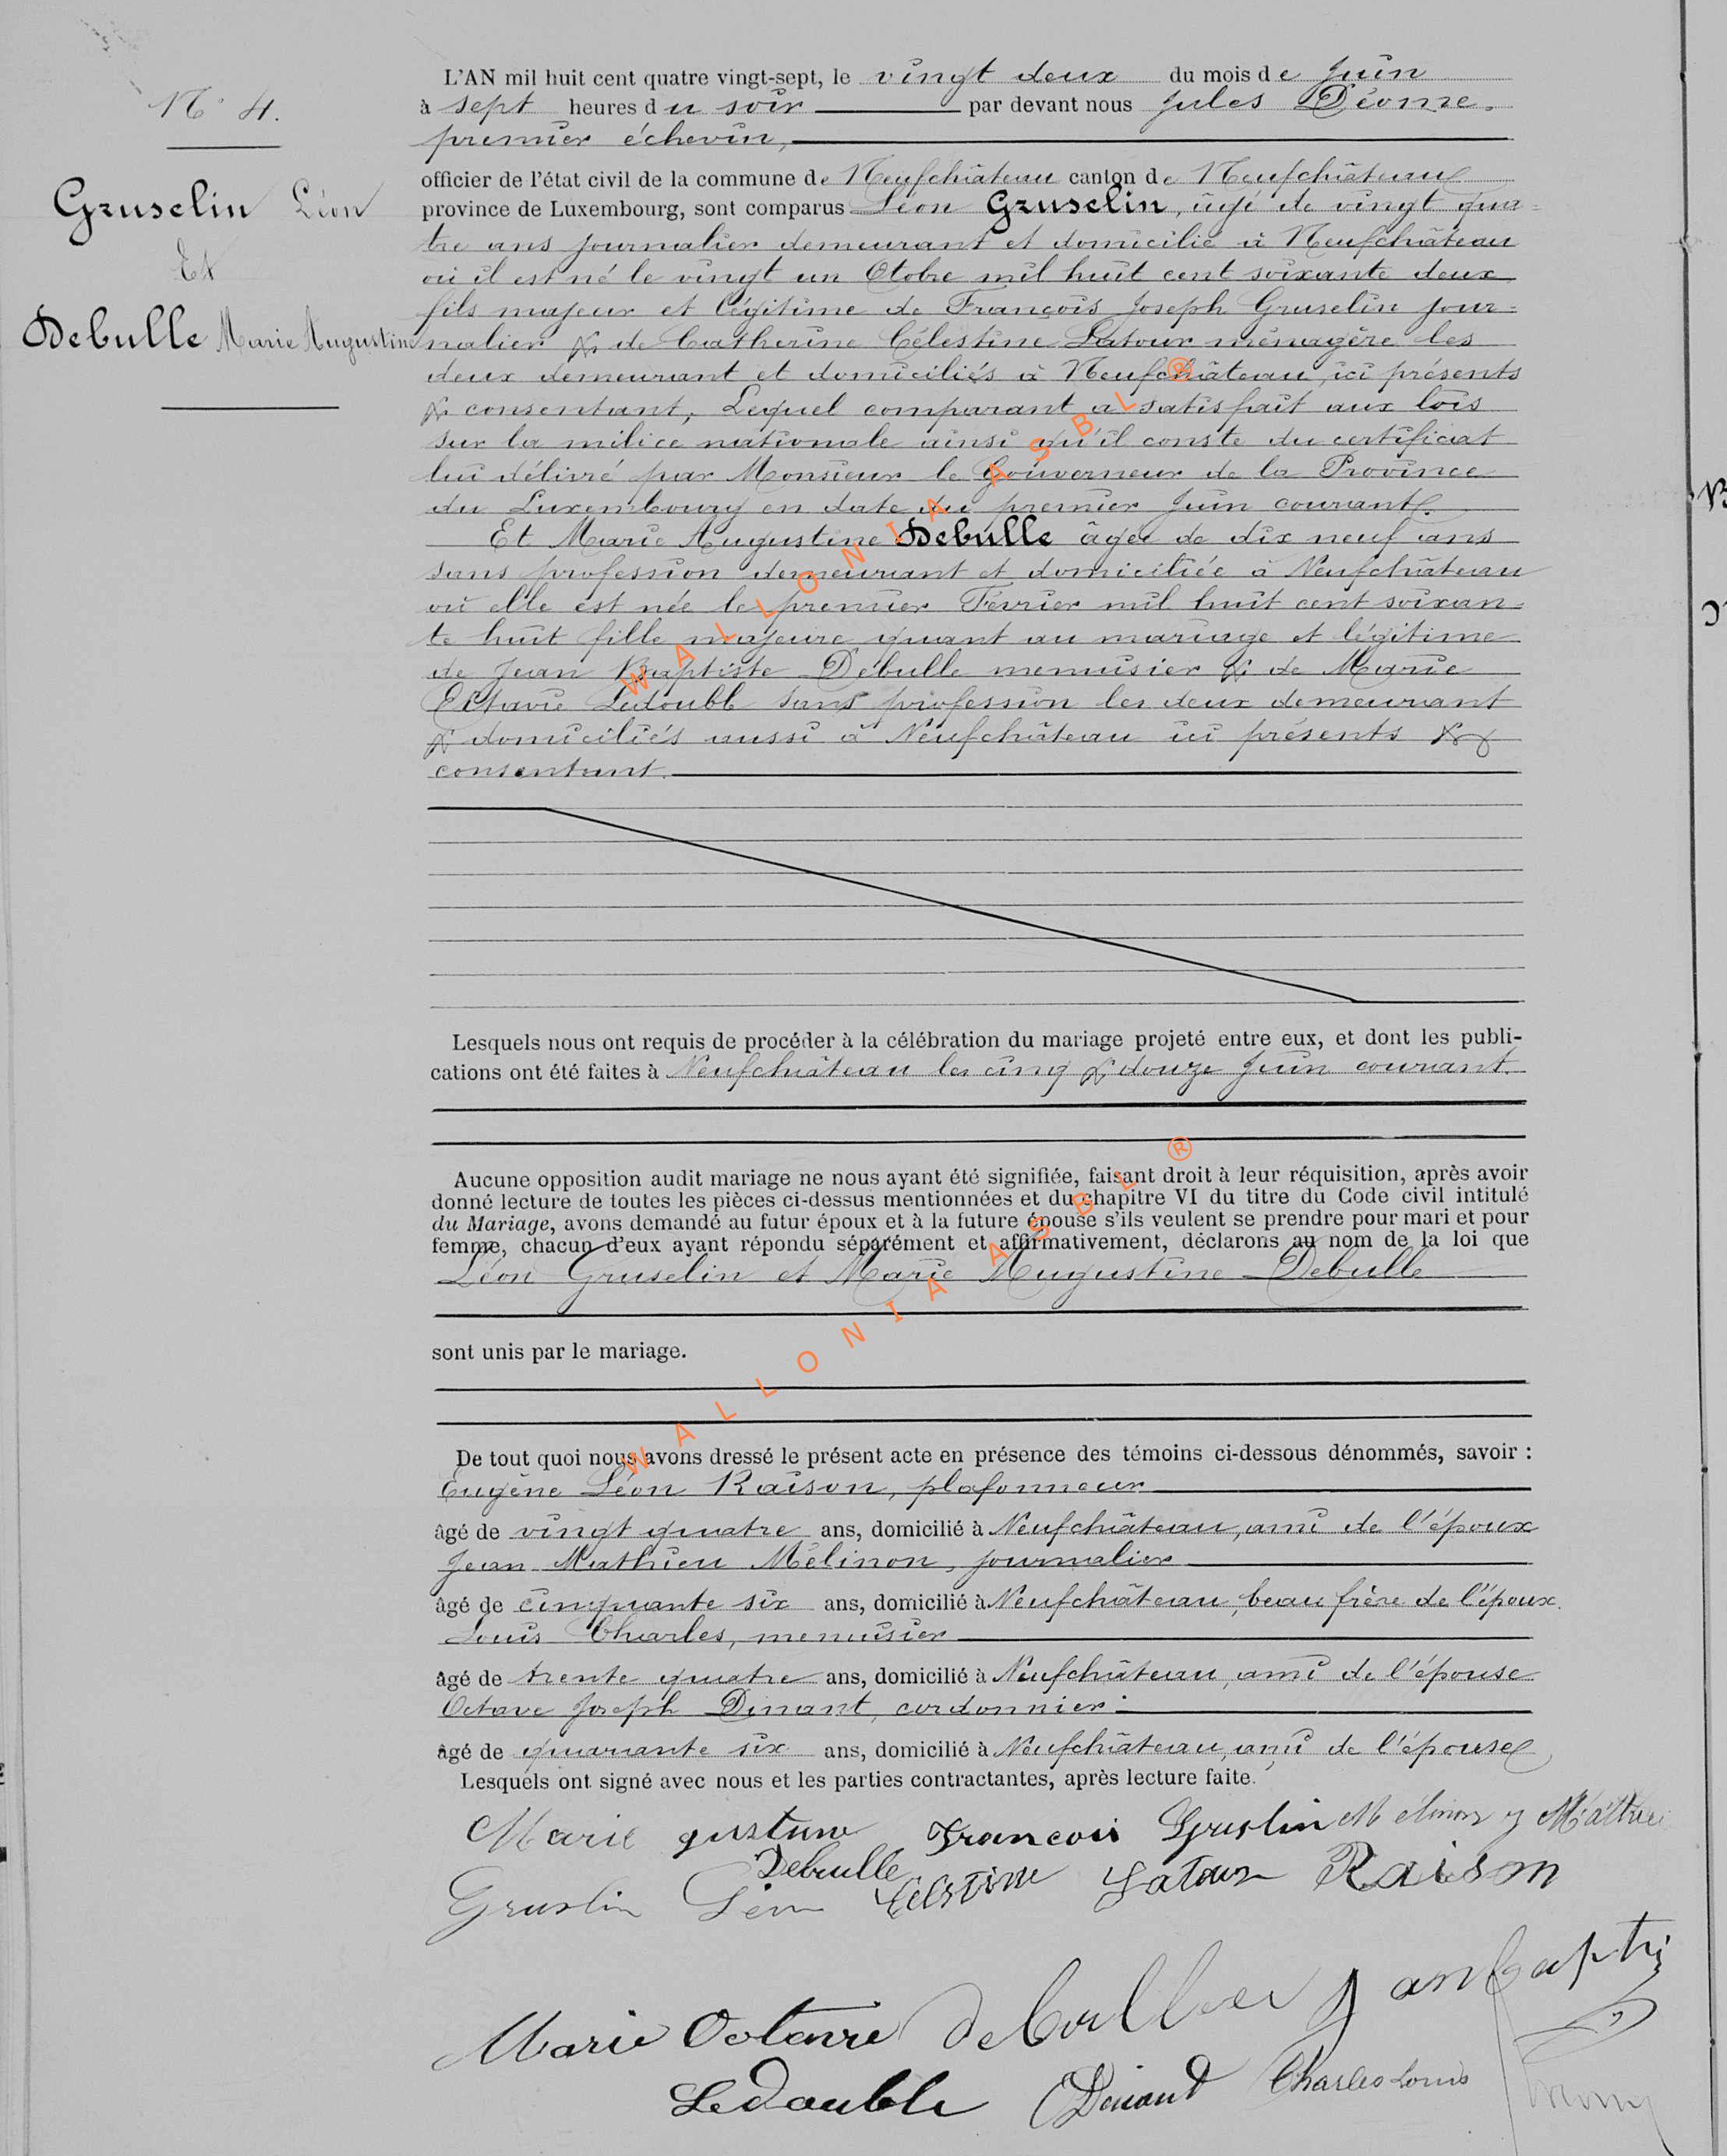 N° 4.
Gruselin Léon
Et
Debulle Marie Augustine
L'AN mil huit cent quatre vingt-sept, le vingt deux du mois de Juin
à sept heures du soir par devant nous Jules Déome.
premier échevin,
officier de l'état civil de la commune de Neufchâteau canton de Neufchâteau
province de Luxembourg, sont comparus Léon Gruselin, âgé de vingt qua=
tre ans journalier demeurant et domicilié à Neufchâteau
où il est né le vingt un Otobre mil huit cent soixante deux
fils majeur et légitime de François Joseph Gruselin jour=
nalier & de Catherine Célestine Latour ménagère les
deux demeurant et domiciliés à Neufchâteau, ici présents
& consentant, Lequel comparant a satisfait aux lois
sur la milice nationale ainsi qu'il conste du certificat
lui délivré par Monsieur le Gouverneur de la Province
du Luxembourg en date du premier Juin courant.
Et Marie Augustine Debulle âgée de dix neuf ans
sans profession demeurant et domiciliée à Neufchâteau
où elle est née le premier Février mil huit cent soixan=
te huit fille majeure quant au mariage et légitime
de Jean Baptiste Debulle menusier & de Marie
Octavie Ledoubl sans profession les deux demeurant
& domiciliés aussi à Neufchâteau ici présents &
consentant.
Lesquels nous ont requis de procéder à la célébration du mariage projeté entre eux, et dont les publi-
cations ont été faites à Neufchâteau les cinq & douze Juin courant.
Aucune opposition audit mariage ne nous ayant été signifiée, faisant droit à leur réquisition, après avoir
donné lecture de toutes les pièces ci-dessus mentionnées et du chapitre VI du titre du Code civil intitulé
du Mariage, avons demandé au futur époux et à la future épouse s'ils veulent se prendre pour mari et pour
femme, chacun d'eux ayant répondu séparément et affirmativement, déclarons au nom de la loi que
Léon Gruselin et Marie Augustine Debulle
sont unis par le mariage.
De tout quoi nous avons dressé le présent acte en présence des témoins ci-dessous dénommés, savoir :
Eugène Léon Raison, plafonneur
âgé de vingt quatre ans, domicilié à Neufchâteau, ami de l'époux
Jean Mathieu Mélinon, journalier
âgé de cinquante six ans, domicilié à Neufchâteau, beau frère de l'époux.
Louis Charles, menusier
âgé de trente quatre ans, domicilié à Neufchâteau, ami de l'épouse
Octave Joseph Dinant, cordonnier
âgé de quarante six ans, domicilié à Neufchâteau, ami de l'épouse
Lesquels ont signé avec nous et les parties contractantes, après lecture faite.
Marie gustine François Gruslin Mélinon J Mathieu
Debulle
Gruslin Léon Célestine Latour Raison
Marie Octavie Debulle Janbaptis
Ledouble Dinant Charles Louis
WALLONIA ASBL ®
WALLONIA ASBL ®